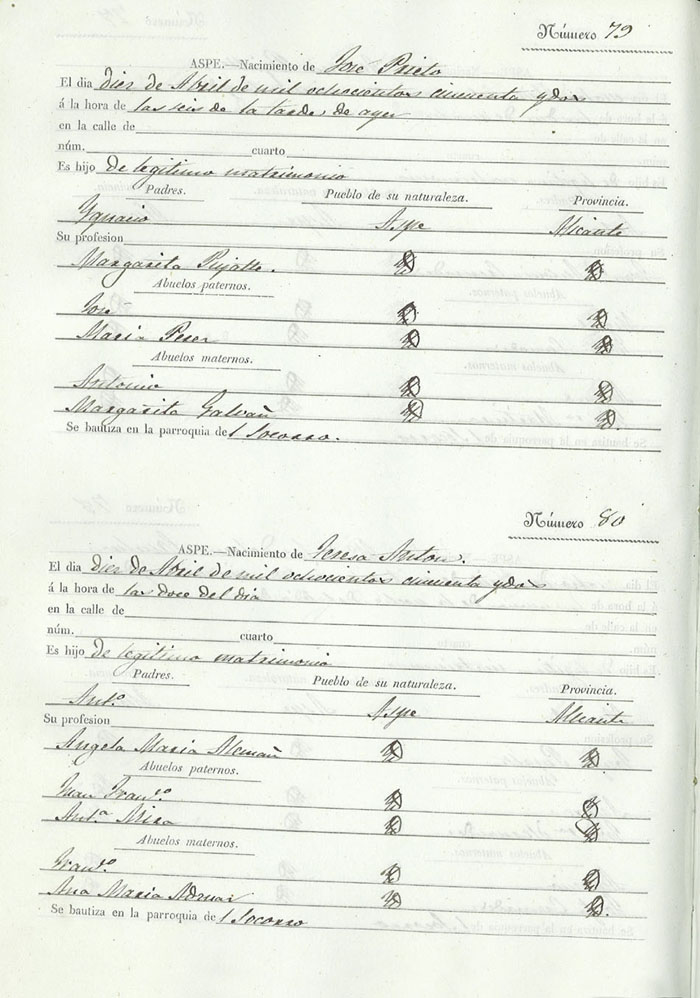 Número 79
ASPE.—Nacimiento de José Prieto
El dia diez de Abril de mil ochocientos cincuenta y dos
á la hora de las seis de la tarde de ayer
en la calle de
núm. cuarto
Es hijo de legitimo matrimonio
Padres. Pueblo de su naturaleza. Provincia.
Ygnacio Aspe Alicante
Su profesion
Margarita Pujalte.
Abuelos paternos.
José
Maria Perez
Abuelos maternos.
Antonio
Margarita Galvañ
Se bautiza en la parroquia del Socorro.
Número 80
ASPE.—Nacimiento de Teresa Anton.
El dia diez de Abril de mil ochocientos cincuenta y dos
á la hora de las doce del dia
en la calle de
núm. cuarto
Es hijo de legitimo matrimonio
Padres. Pueblo de su naturaleza. Provincia.
Ant.º Aspe Alicante
Su profesion
Angela Maria Alemañ
Abuelos paternos.
Juan Fran.co
Ant.ª Mira
Abuelos maternos.
Fran.co
Ana Maria
Se bautiza en la parroquia del Socorro